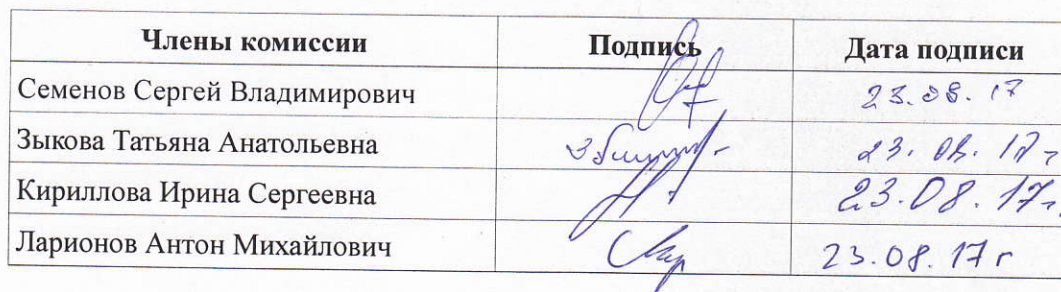 Члены комиссии Подпись Дата подписи
Семенов Сергей Владимирович 23.08.17
Зыкова Татьяна Анатольевна 23.08.17г
Кириллова Ирина Сергеевна 23.08.17г
Ларионов Антон Михайлович 23.08.17 г